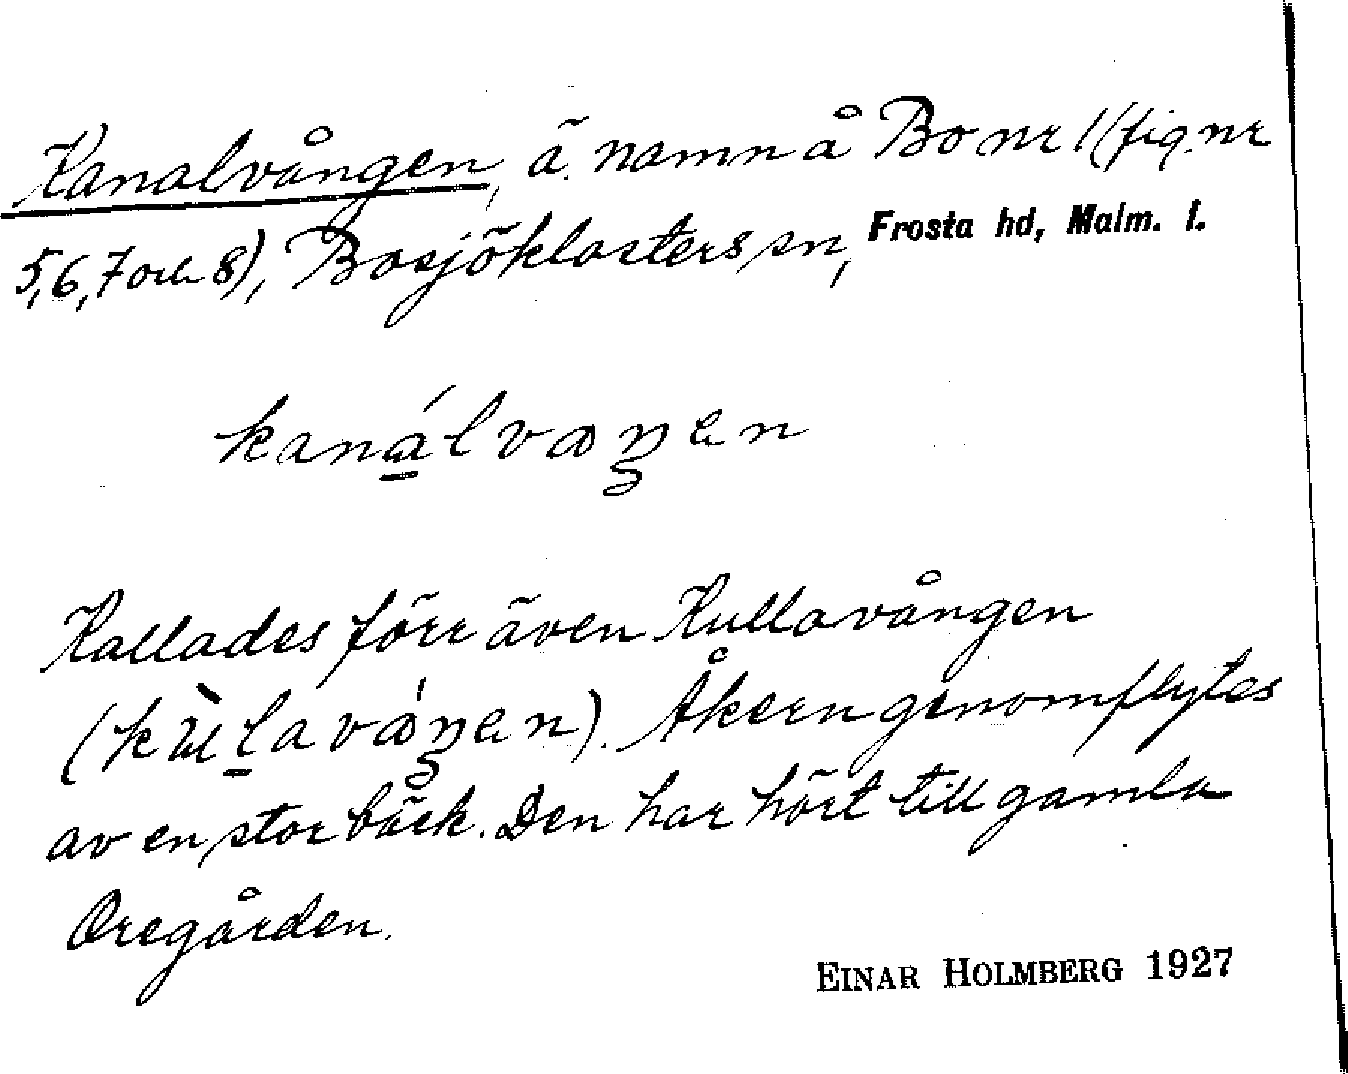 Kanalvången, ä. namn å Bo nr 1 (fig. nr
5, 6, 7 och 8), Bosjöklosters sn, Frosta hd, Malm. l.
kanálvaŋen
Kallades förr även Kullavången
(kùlavaŋen). Åkern genomflytes
av en stor bäck. Den har hört till gamla
Oregården.
EINAR HOLMBERG 1927